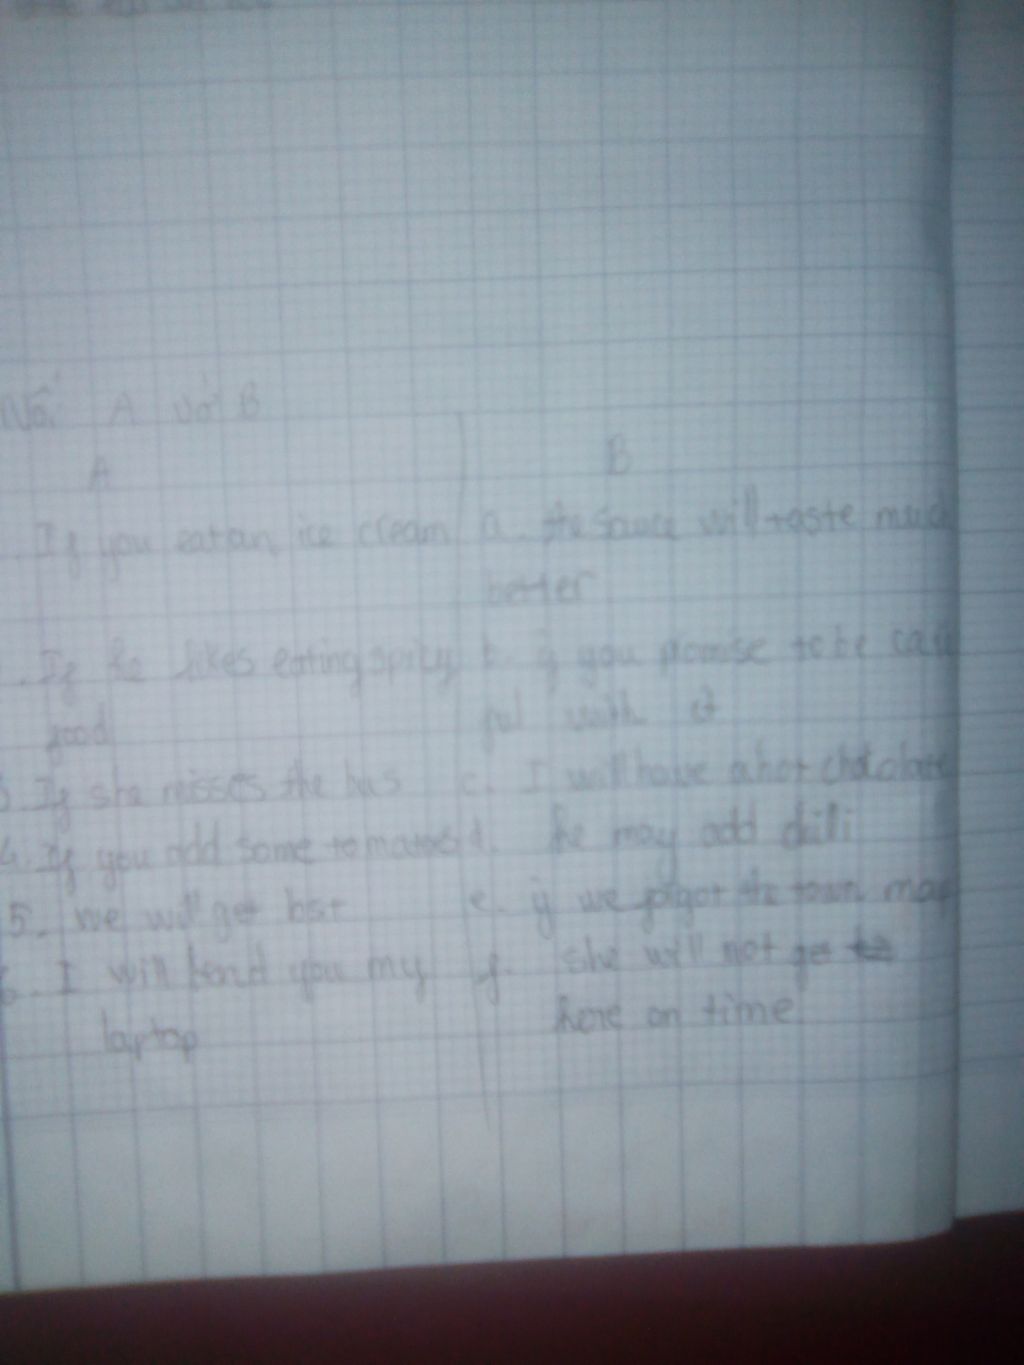 Nối A với B
A B
If you eat an ice cream a. the sauce will taste much
better
. If he likes eating spicy b. if you promise to be care
food ful with it
3. If she misses the bus c. I will have a hot chocolate
4. If you add some tomatoes d. he may add chilli
5. we will get lost e. if we forgot the town map
6. I will lend you my f. she will not get
laptop here on time